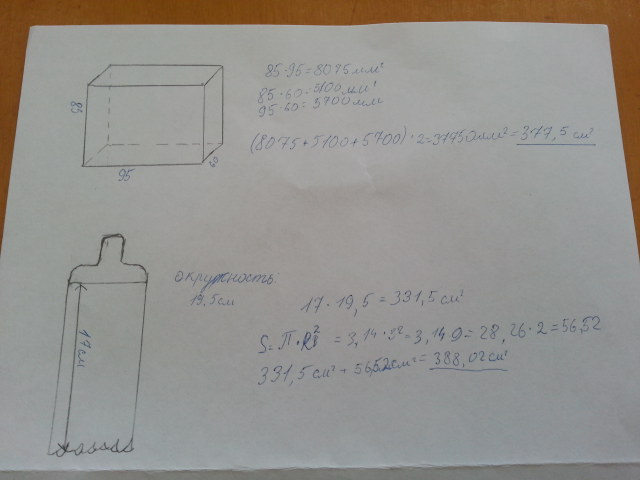 85·95=8075мм²
85·60=5100мм²
95·60=5700мм
85
(8075+5100+5700)·2=37750мм²=377,5см²
95
окружность
19,5см
17·19,5=331,5см²
17см
S=П·R²=3,14·3²=3,14·9=28,26·2=56,52
331,5см²+56,52см²=388,02см²